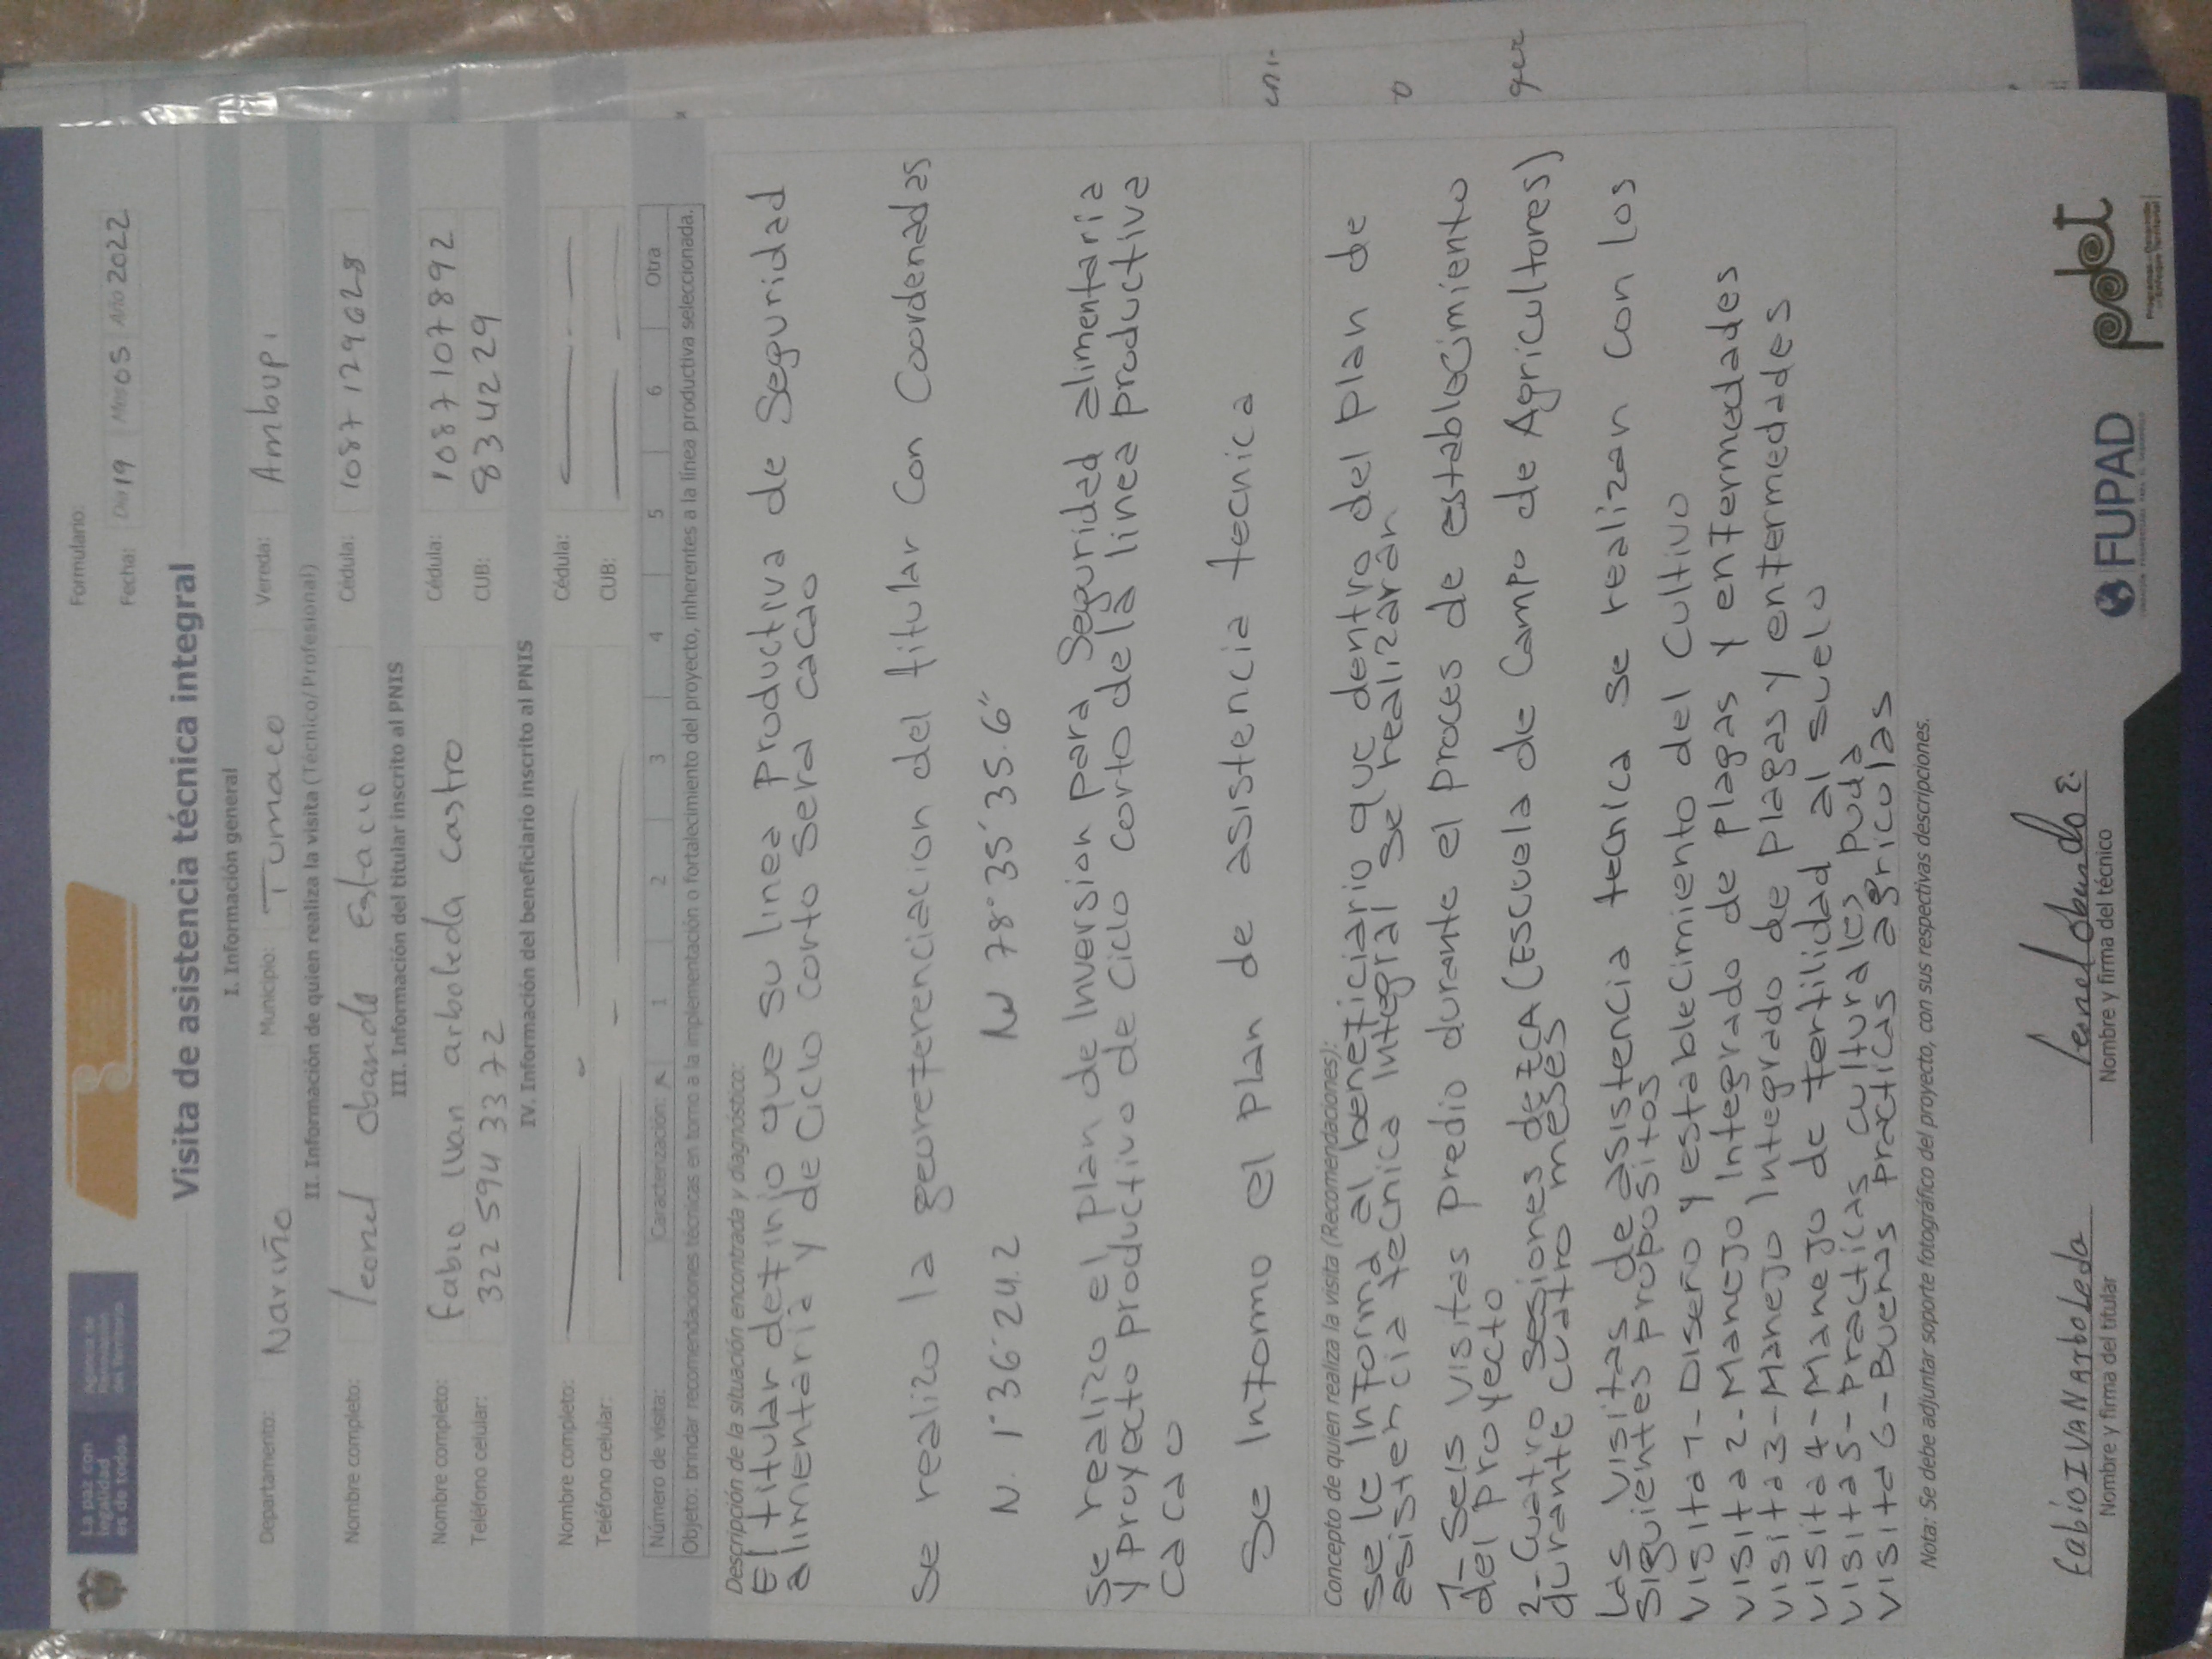 La paz con
legalidad
es de todos
Agencia de
Renovación
del Territorio
Formulario:
Fecha: Día 19 Mes 05 Año 2022
Visita de asistencia técnica integral
I. Información general
Departamento: Nariño Municipio: Tumaco Vereda: Ambupi
II. Información de quien realiza la visita (Técnico/Profesional)
Nombre completo: leonel obando Estacio Cédula: 1087129628
III. Información del titular inscrito al PNIS
Nombre completo: fabio Ivan arboleda castro Cédula: 1087107892
Teléfono celular: 322 594 3372 CUB: 834229
IV. Información del beneficiario inscrito al PNIS
Nombre completo: Cédula:
Teléfono celular: CUB:
Número de visita: Caracterización: x 1 2 3 4 5 6 Otra
Objeto: brindar recomendaciones técnicas en torno a la implementación o fortalecimiento del proyecto, inherentes a la línea productiva seleccionada.
Descripción de la situación encontrada y diagnóstico:
El titular definio que su linea Productiva de Seguridad
alimentaria y de ciclo corto sera cacao
Se realizo la georeferenciacion del titular Con Coordenadas
N. 1°36´24.2 W 78°35´35.6"
Se realizo el plan de Inversion para Seguridad alimentaria
y proyecto productivo de ciclo corto de la linea productiva
cacao
Se Informo el plan de asistencia tecnica
Concepto de quien realiza la visita (Recomendaciones):
se le Informa al beneficiario que dentro del plan de
asistencia tecnica Integral se realizaran
1-Seis visitas predio durante el proces de establecimiento
del proyecto
2-Cuatro sesiones de ECA (Escuela de Campo de Agricultores)
durante cuatro meses
Las visitas de asistencia tecnica se realizan con los
siguientes propositos
visita 1-Diseño y establecimiento del cultivo
visita 2-Manejo Integrado de plagas y enfermedades
visita 3-Manejo Integrado de plagas y enfermedades
visita 4-Manejo de fertilidad al suelo
visita 5-Practicas culturales puda
visita 6-Buenas practicas agricolas
Nota: Se debe adjuntar soporte fotográfico del proyecto, con sus respectivas descripciones.
fabio IVAN Arboleda
Nombre y firma del titular
leonel obando E.
Nombre y firma del técnico
FUPAD
pdet